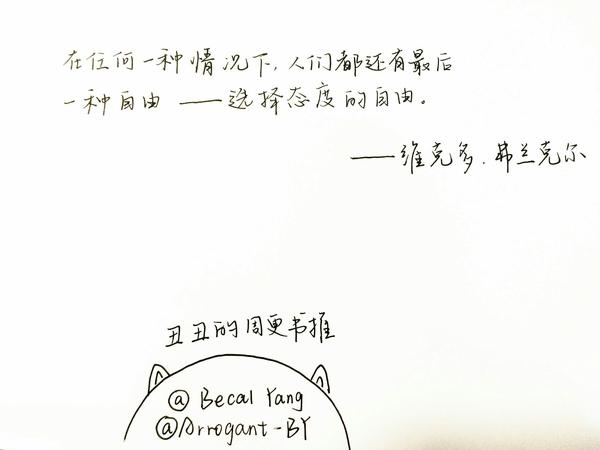 在任何一种情况下,人们都还有最后
一种自由 ——选择态度的自由。
——维克多.弗兰克尔
丑丑的周更书推
@ Becal Yang
@Arrogant-BY